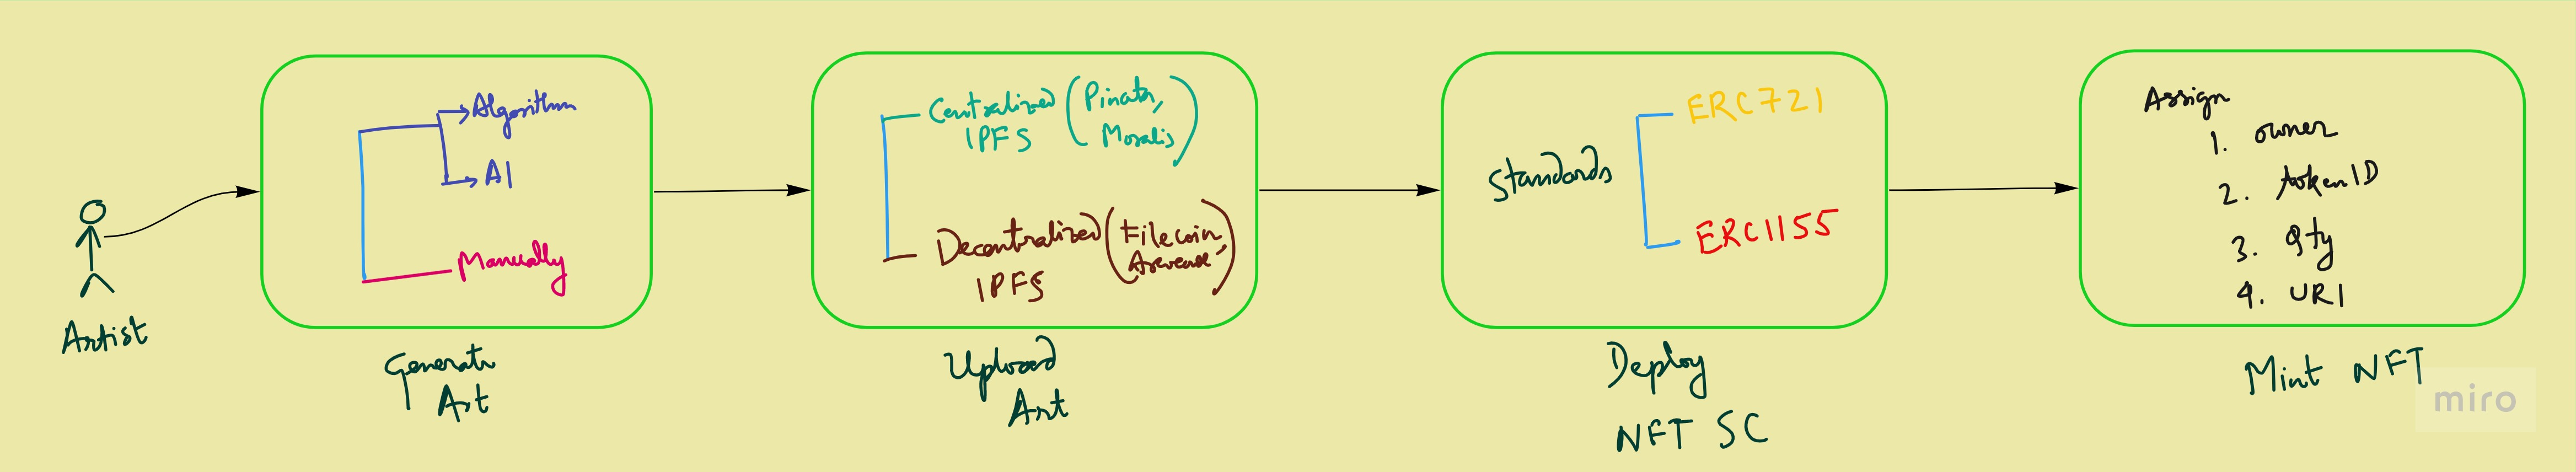 Artist
Algorithm
AI
Manually
Generate
Art
Centralized (Pinata,
IPFS Moralis)
Decentralized (Filecoin,
IPFS Arweave)
Upload
Art
Standards
ERC721
ERC1155
Deploy
NFT SC
Assign
1. owner
2. tokenID
3. qty
4. URI
Mint NFT
miro